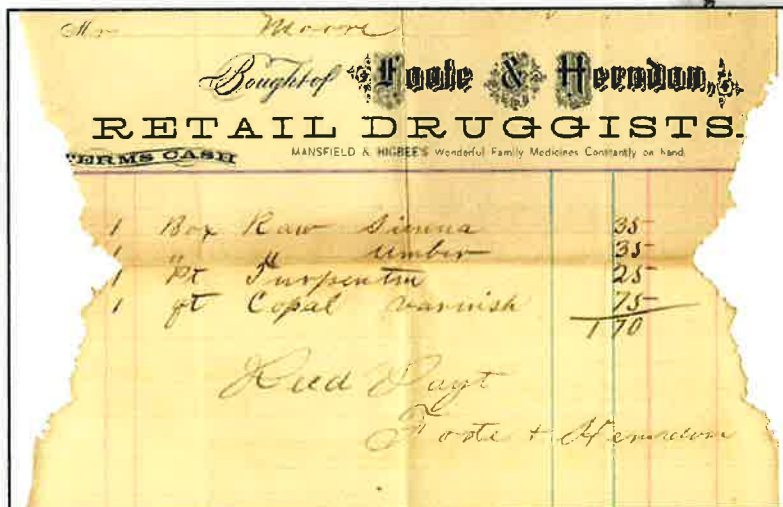 Mr Moore
Bought of Foote & Herndon,
RETAIL DRUGGISTS.
TERMS CASH MANSFIELD & HIGBEE'S Wonderful Family Medicines Constantly on hand.
1 Box Raw Sienna 35
1 " " Umber 35
1 Pt Turpentin 25
1 qt Copal Varnish 75
1 70
Recd Payt
Foote & Herndon